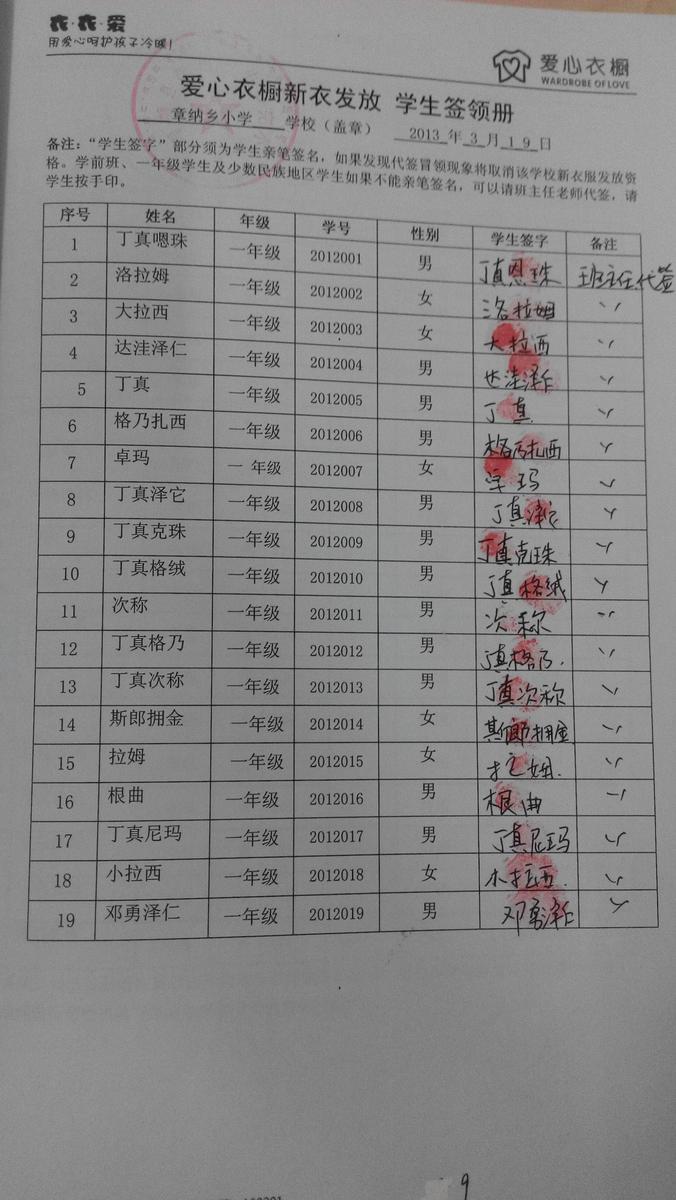 衣·衣·爱
用爱心呵护孩子冷暖!
爱心衣橱
WARDROBE OF LOVE
爱心衣橱新衣发放 学生签领册
章纳乡小学 学校（盖章） 2013 年 3 月 19 日
备注：“学生签字”部分须为学生亲笔签名，如果发现代签冒领现象将取消该学校新衣服发放资
格。学前班、一年级学生及少数民族地区学生如果不能亲笔签名，可以请班主任老师代签，请
学生按手印。
序号 姓名 年级 学号 性别 学生签字 备注
1 丁真嗯珠 一年级 2012001 男 丁真恩珠 班主任代签
2 洛拉姆 一年级 2012002 女 洛拉姆 〃
3 大拉西 一年级 2012003 女 大拉西 〃
4 达洼泽仁 一年级 2012004 男 达洼泽仁 〃
5 丁真 一年级 2012005 男 丁真 〃
6 格乃扎西 一年级 2012006 男 格乃扎西 〃
7 卓玛 一年级 2012007 女 卓玛 〃
8 丁真泽它 一年级 2012008 男 丁真泽它 〃
9 丁真克珠 一年级 2012009 男 丁真克珠 〃
10 丁真格绒 一年级 2012010 男 丁真格绒 〃
11 次称 一年级 2012011 男 次称 〃
12 丁真格乃 一年级 2012012 男 丁真格乃. 〃
13 丁真次称 一年级 2012013 男 丁真次称 〃
14 斯郎拥金 一年级 2012014 女 斯郎拥金 〃
15 拉姆 一年级 2012015 女 拉姆. 〃
16 根曲 一年级 2012016 男 根曲 〃
17 丁真尼玛 一年级 2012017 男 丁真尼玛 〃
18 小拉西 一年级 2012018 女 小拉西. 〃
19 邓勇泽仁 一年级 2012019 男 邓勇泽仁 〃
9